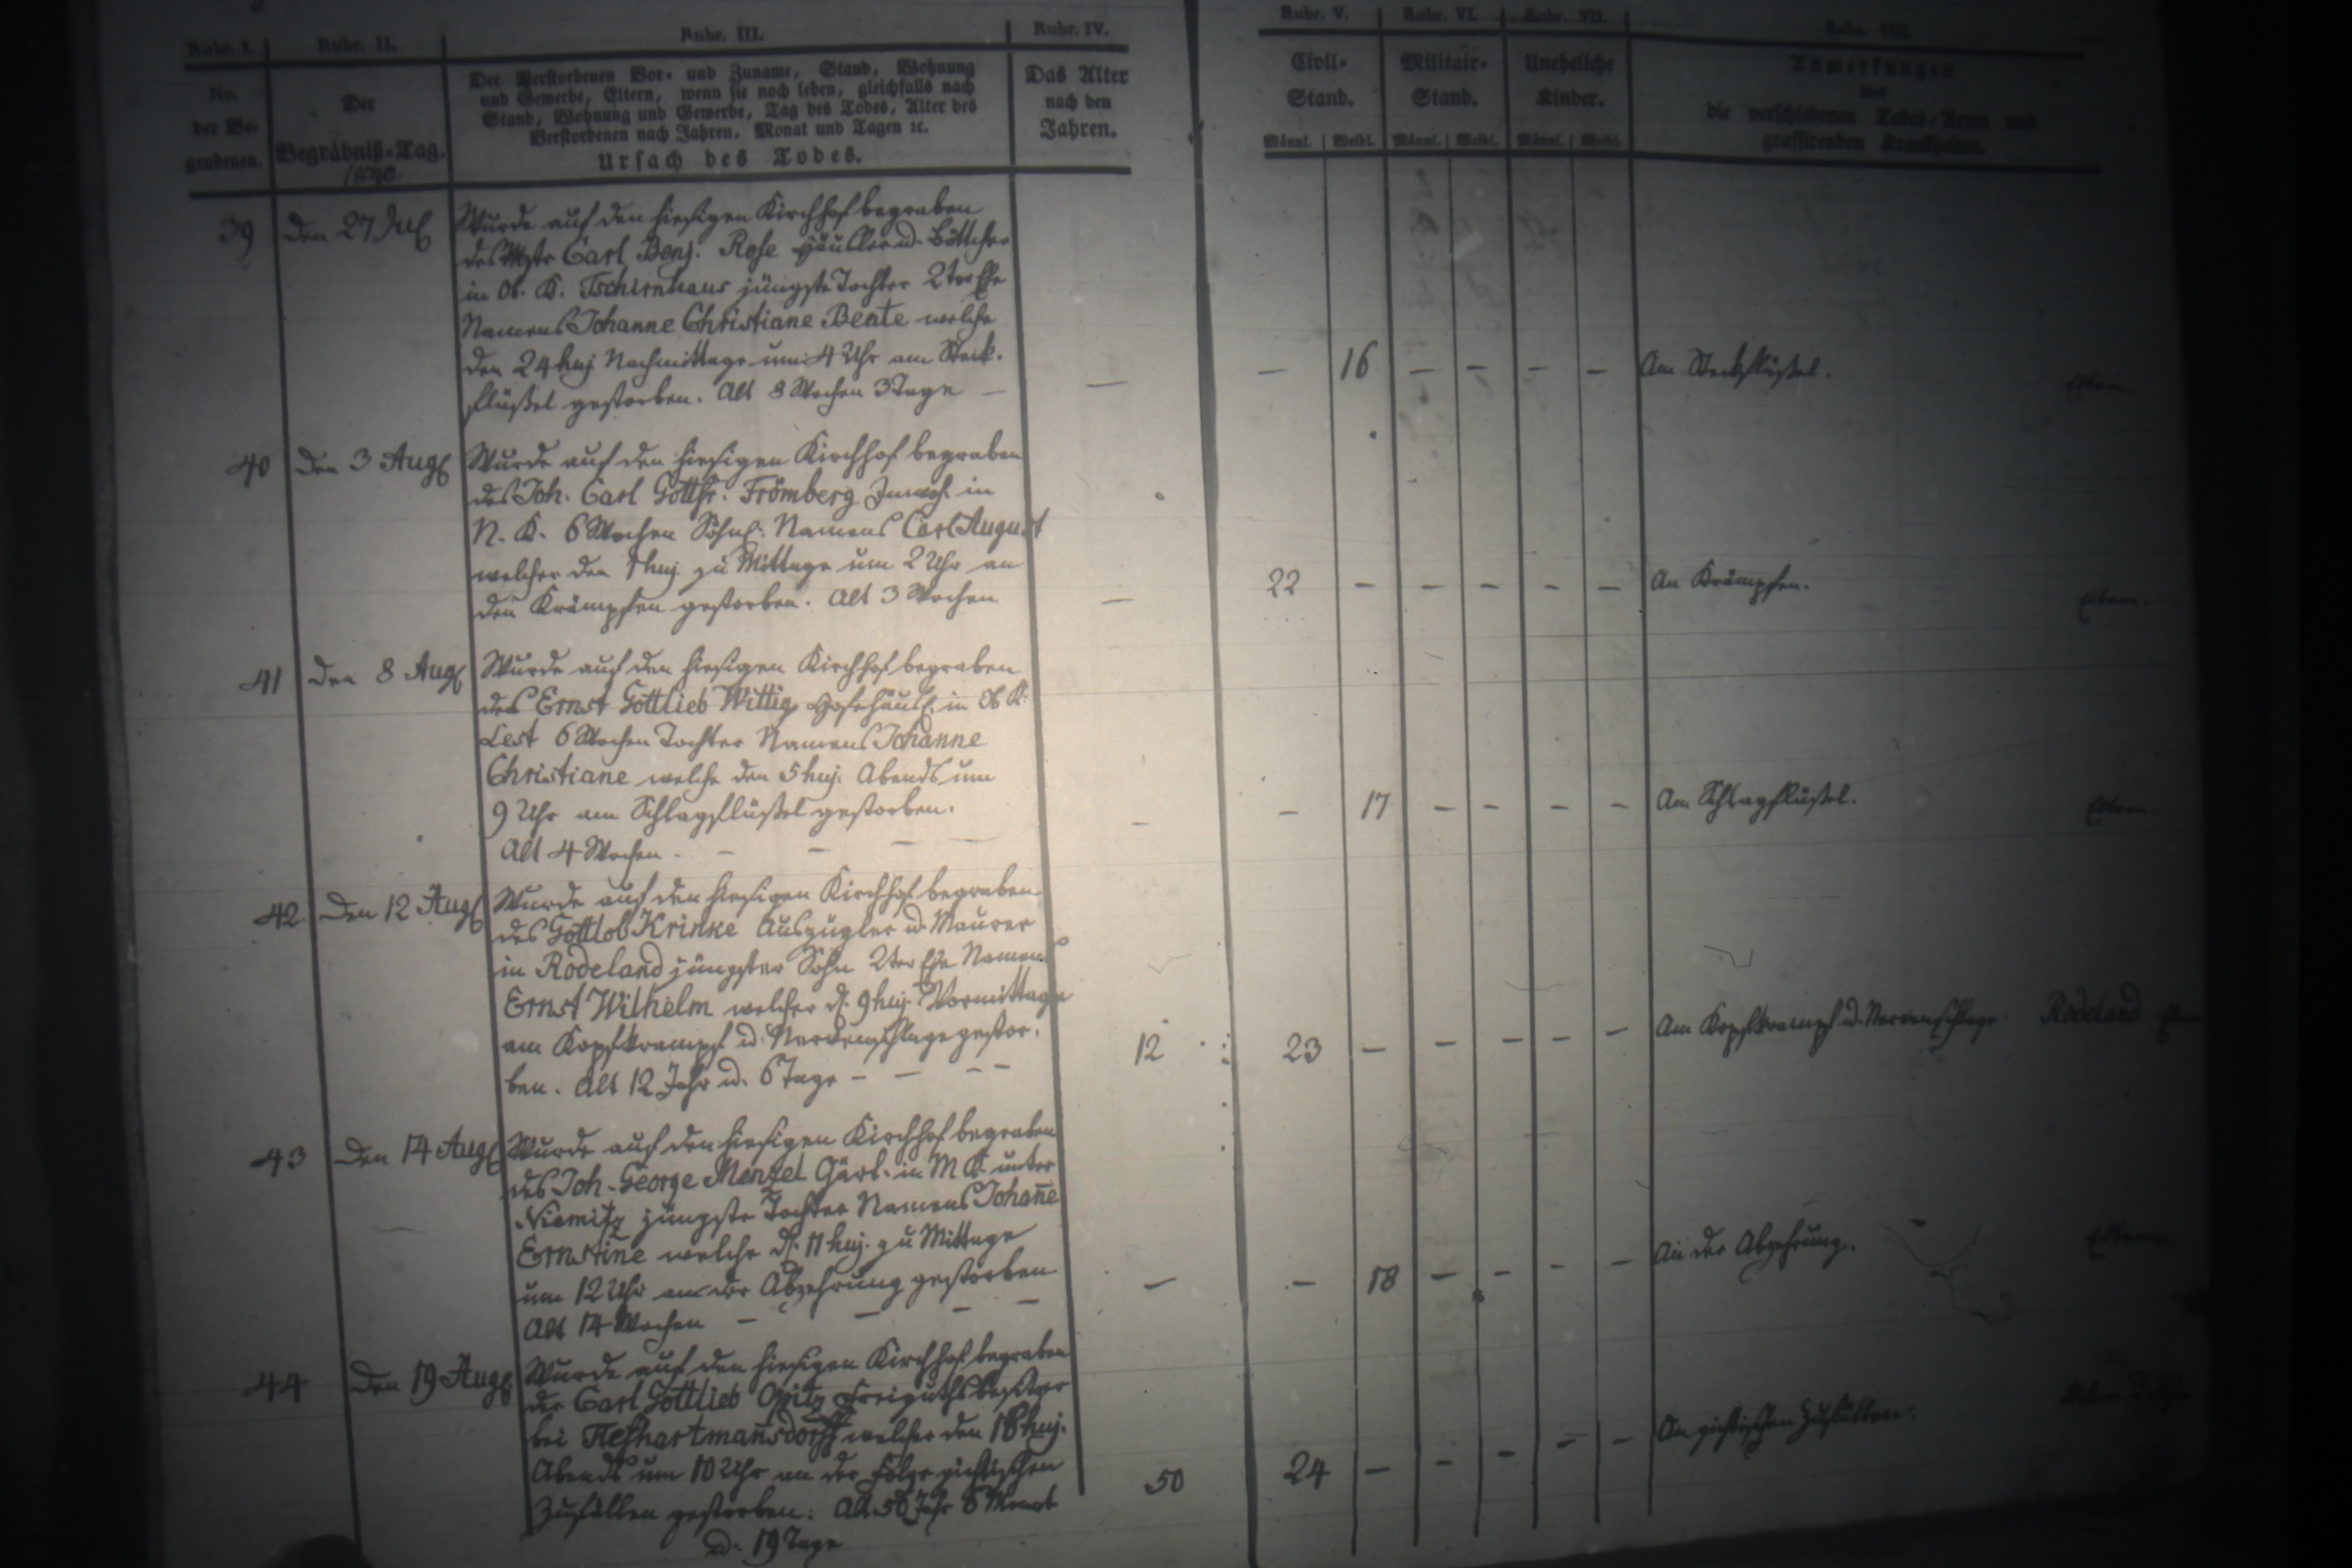 Rubr. I. Rubr. II. Rubr. III. Rubr. IV. Rubr. V. Rubr. VI. Rubr. VII. Rubr. VIII.
No.
der Be-
grabenen.
Der
Begräbniß-Tag.
1840
Der Verstorbenen Vor- und Zuname, Stand, Wohnung
und Gewerbe, Eltern, wenn sie noch leben, gleichfalls nach
Stand, Wohnung und Gewerbe, Tag des Todes, Alter des
Verstorbenen nach Jahren, Monat und Tagen ꝛc.
Ursach des Todes.
Das Alter
nach den
Jahren.
Civil-
Stand.
Männl. Weibl.
Militair-
Stand.
Männl. Weibl.
Uneheliche
Kinder.
Männl. Weibl.
Anmerkungen
über
die verschiedenen Todes-Arten und
grassirenden Krankheiten.
39 Den 27 Jul
Wurde auf den hiesigen Kirchhof begraben
des Mstr Carl Benj. Rose Häusler u. Böttcher
in Ob. K. Tschirnhaus jüngste Tochter 2ter Ehe
Namens Johanne Christiane Beate welche
den 24 huj Nachmittage um 4 Uhr am Steck-
flüßel gestorben. Alt 8 Wochen 3 Tage —
— — 16 — — — — Am Steckflüßel. Eltern.
40 Den 3 Aug
Wurde auf den hiesigen Kirchhof begraben
des Joh. Carl Gottfr. Frömberg Inwoh. in
N. K. 6 Wochen Söhnl. Namens Carl August
welcher den 1 huj zu Mittage um 2 Uhr an
den Krämpfen gestorben. Alt 3 Wochen
— 22 — — — — — An Krämpfen. Eltern.
41 Den 8 Aug
Wurde auf den hiesigen Kirchhof begraben
des Ernst Gottlieb Wittig Hofehäusl. in Ob K.
Lest 6 Wochen Tochter Namens Johanne
Christiane welche den 5 huj. Abends um
9 Uhr am Schlagflüßel gestorben.
Alt 4 Wochen. — — — —
— — 17 — — — — Am Schlagflüßel. Eltern
42 Den 12 Aug
Wurde auf den hiesigen Kirchhof begraben
des Gottlob Krinke Auszügler u. Maurer
in Rodeland jüngster Sohn 2ter Ehe Namens
Ernst Wilhelm welcher d. 9 huj. Vormittage
am Kopfkrampf u. Nervenschlage gestor-
ben. Alt 12 Jahr u. 6 Tage — — — —
12 23 — — — — — Am Kopfkrampf u. Nervenschlage. Rodeland
43 Den 14 Aug
Wurde auf den hiesigen Kirchhof begraben
des Joh. George Menzel Gärt. in M K. unter
Niemitz jüngste Tochter Namens Johañe
Ernstine welche d. 11 huj. zu Mittage
um 12 Uhr an der Abzehrung gestorben
Alt 14 Wochen — — — —
— — 18 — — — — An der Abzehrung. Eltern
44 Den 19 Aug
Wurde auf den hiesigen Kirchhof begraben
der Carl Gottlieb Opitz Freiguthsbesitzer
bei Tiefhartmañsdorff welcher den 18 huj.
Abends um 10 Uhr an der Folge gichtischen
Zufällen gestorben. Alt 50 Jahr 8 Monat
u. 19 Tage
50 24 — — — — — An gichtischen Zufällen.